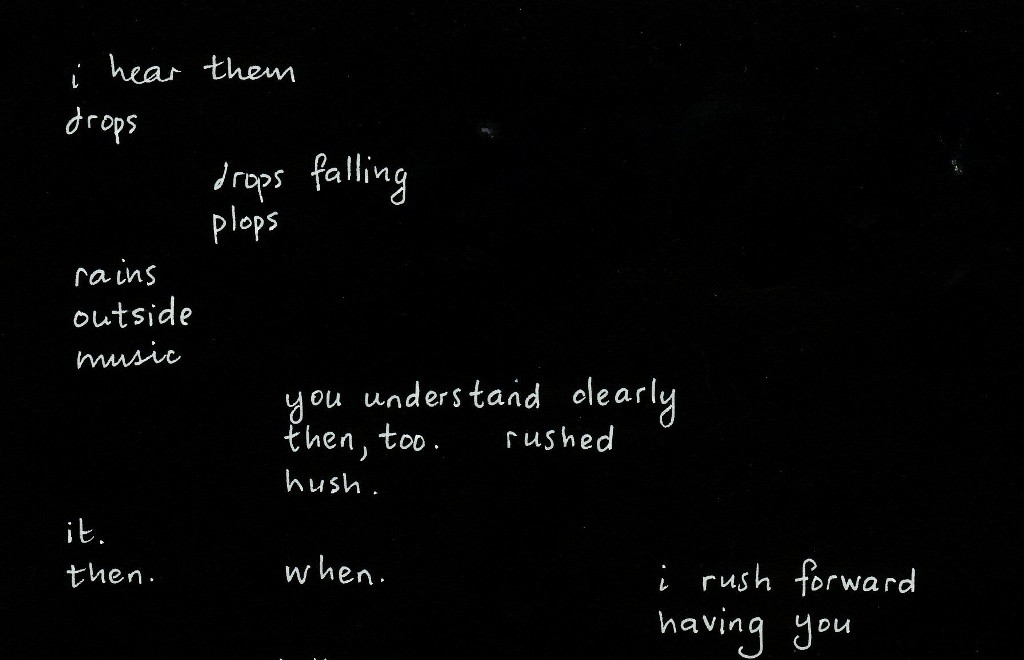 i hear them
drops
drops falling
plops
rains
outside
music
you understand clearly
then, too. rushed
hush.
it.
then. when. i rush forward
having you